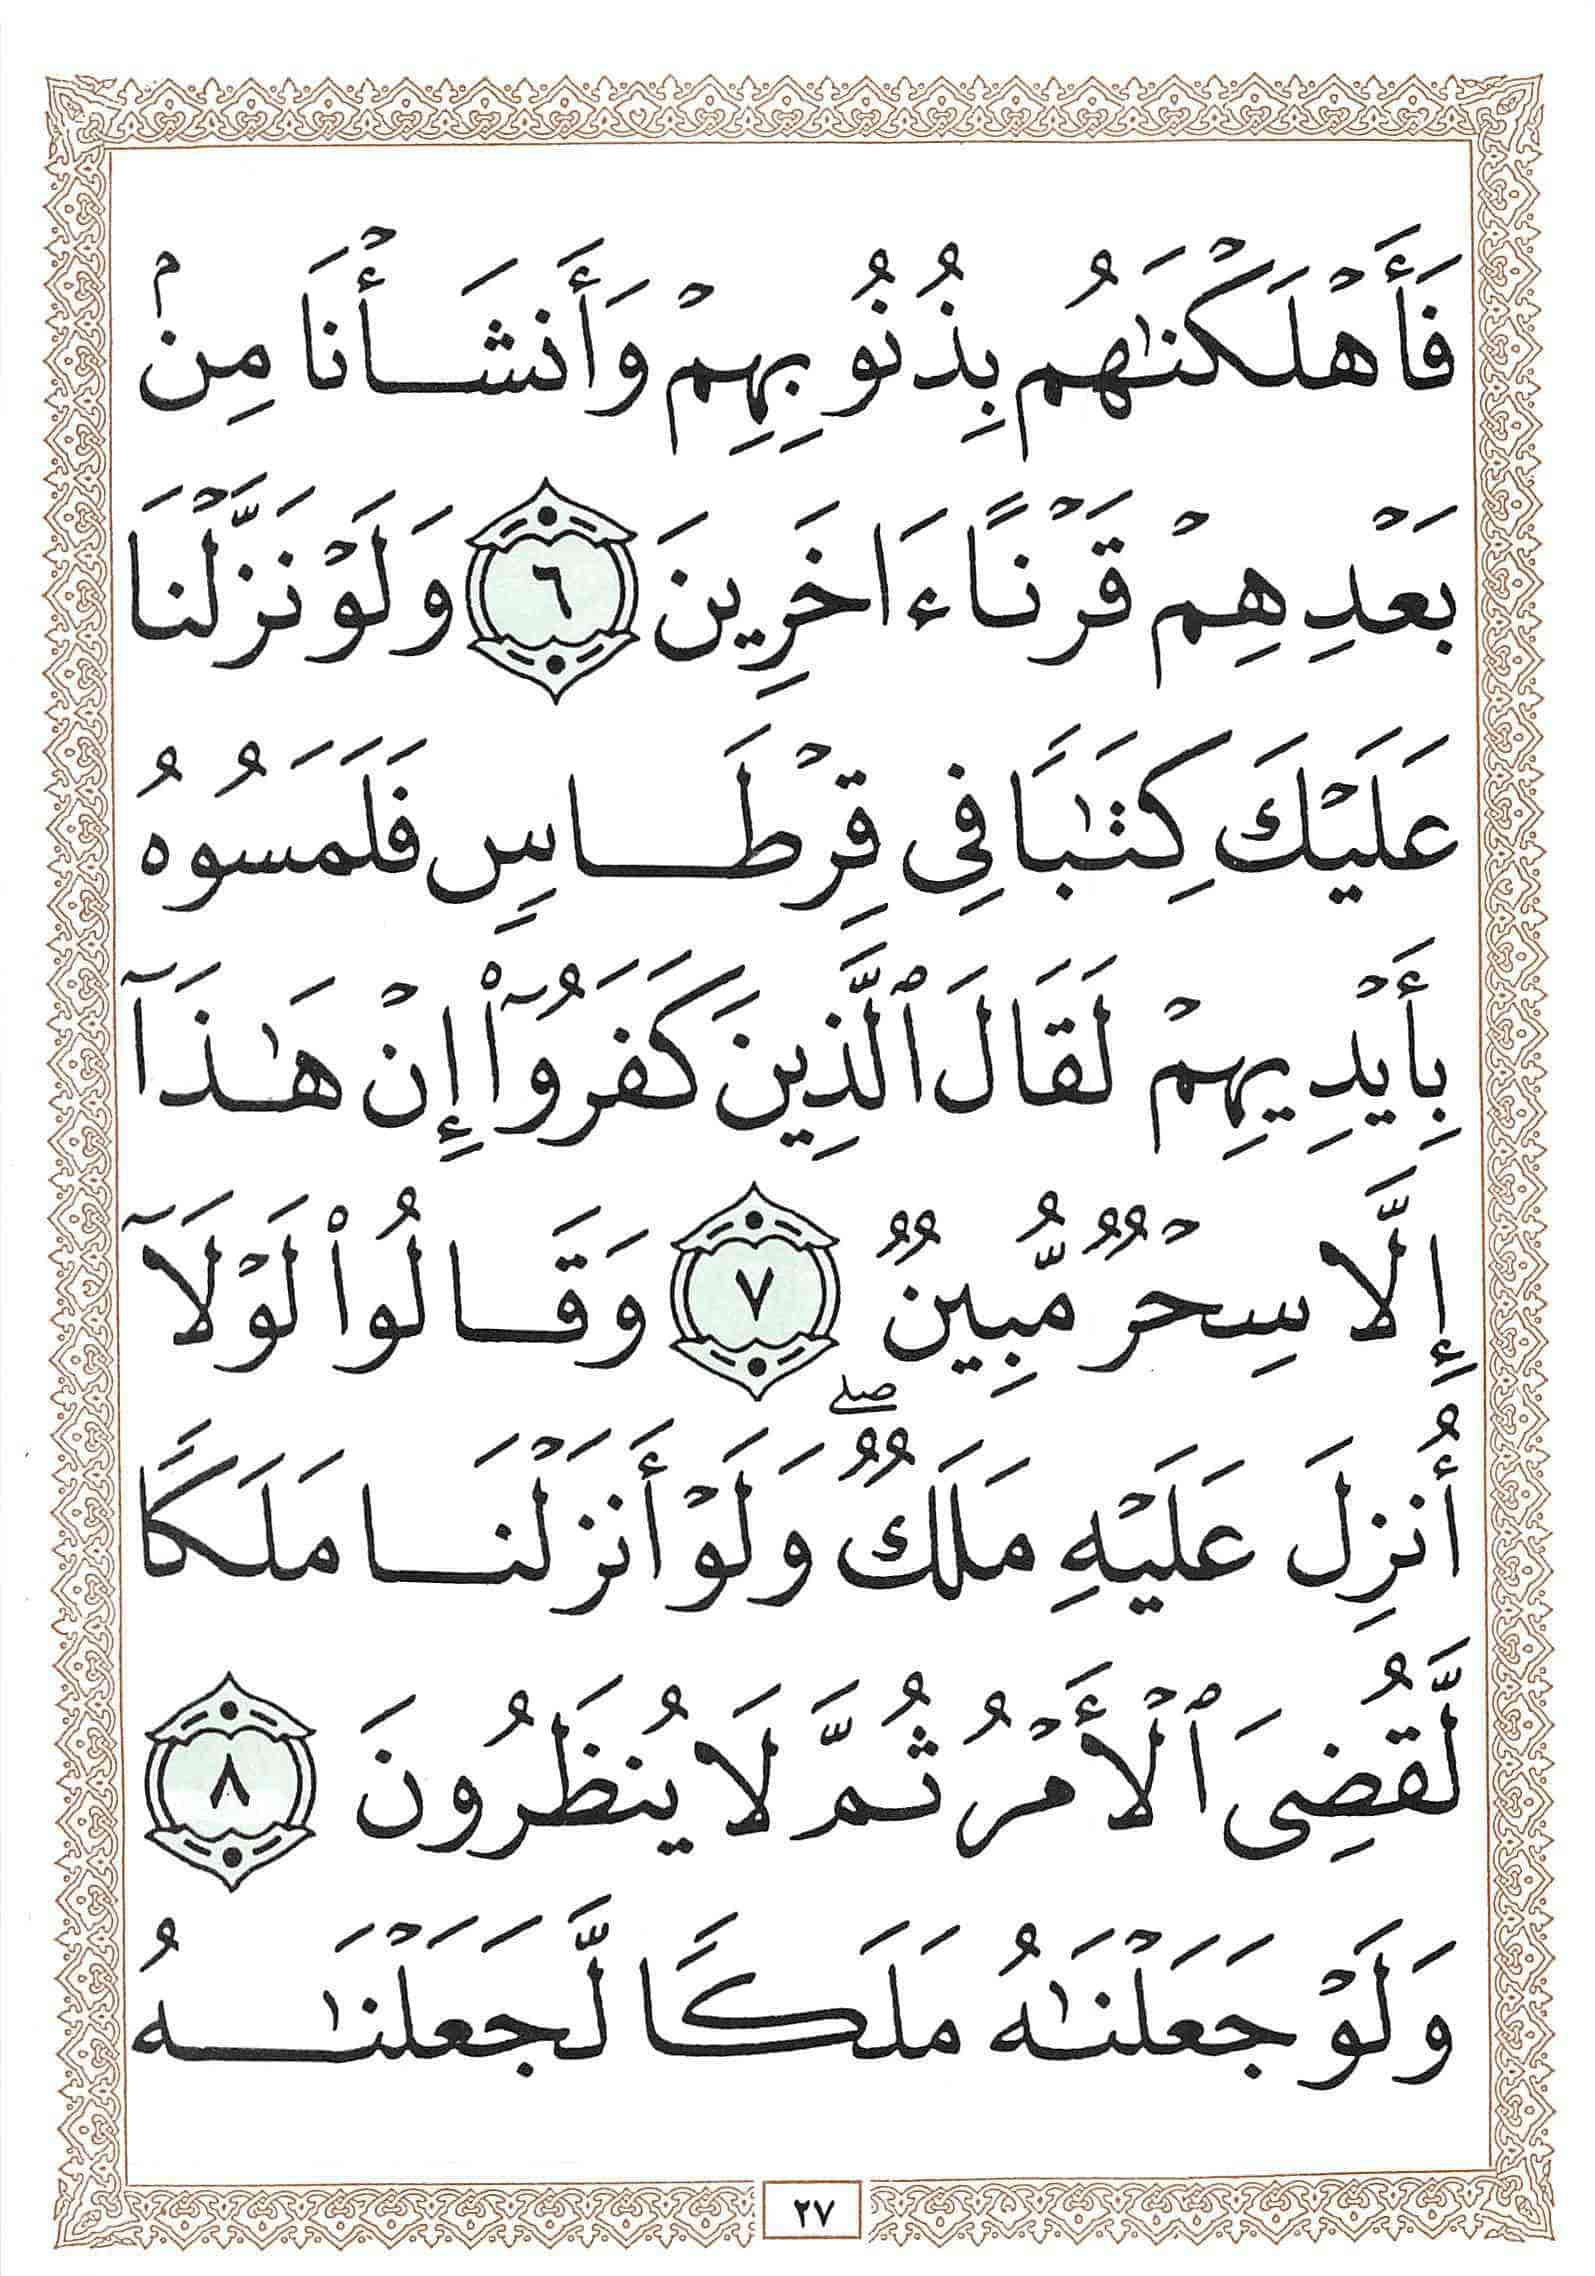 فَأَهْلَكْنَٰهُم بِذُنُوبِهِمْ وَأَنشَأْنَا مِنۢ
بَعْدِهِمْ قَرْنًا ءَاخَرِينَ ٦ وَلَوْ نَزَّلْنَا
عَلَيْكَ كِتَٰبًا فِى قِرْطَاسٍ فَلَمَسُوهُ
بِأَيْدِيهِمْ لَقَالَ ٱلَّذِينَ كَفَرُوٓا۟ إِنْ هَٰذَآ
إِلَّا سِحْرٌ مُّبِينٌ ٧ وَقَالُوا۟ لَوْلَآ
أُنزِلَ عَلَيْهِ مَلَكٌ ۖ وَلَوْ أَنزَلْنَا مَلَكًا
لَّقُضِىَ ٱلْأَمْرُ ثُمَّ لَا يُنظَرُونَ ٨
وَلَوْ جَعَلْنَٰهُ مَلَكًا لَّجَعَلْنَٰهُ
٢٧